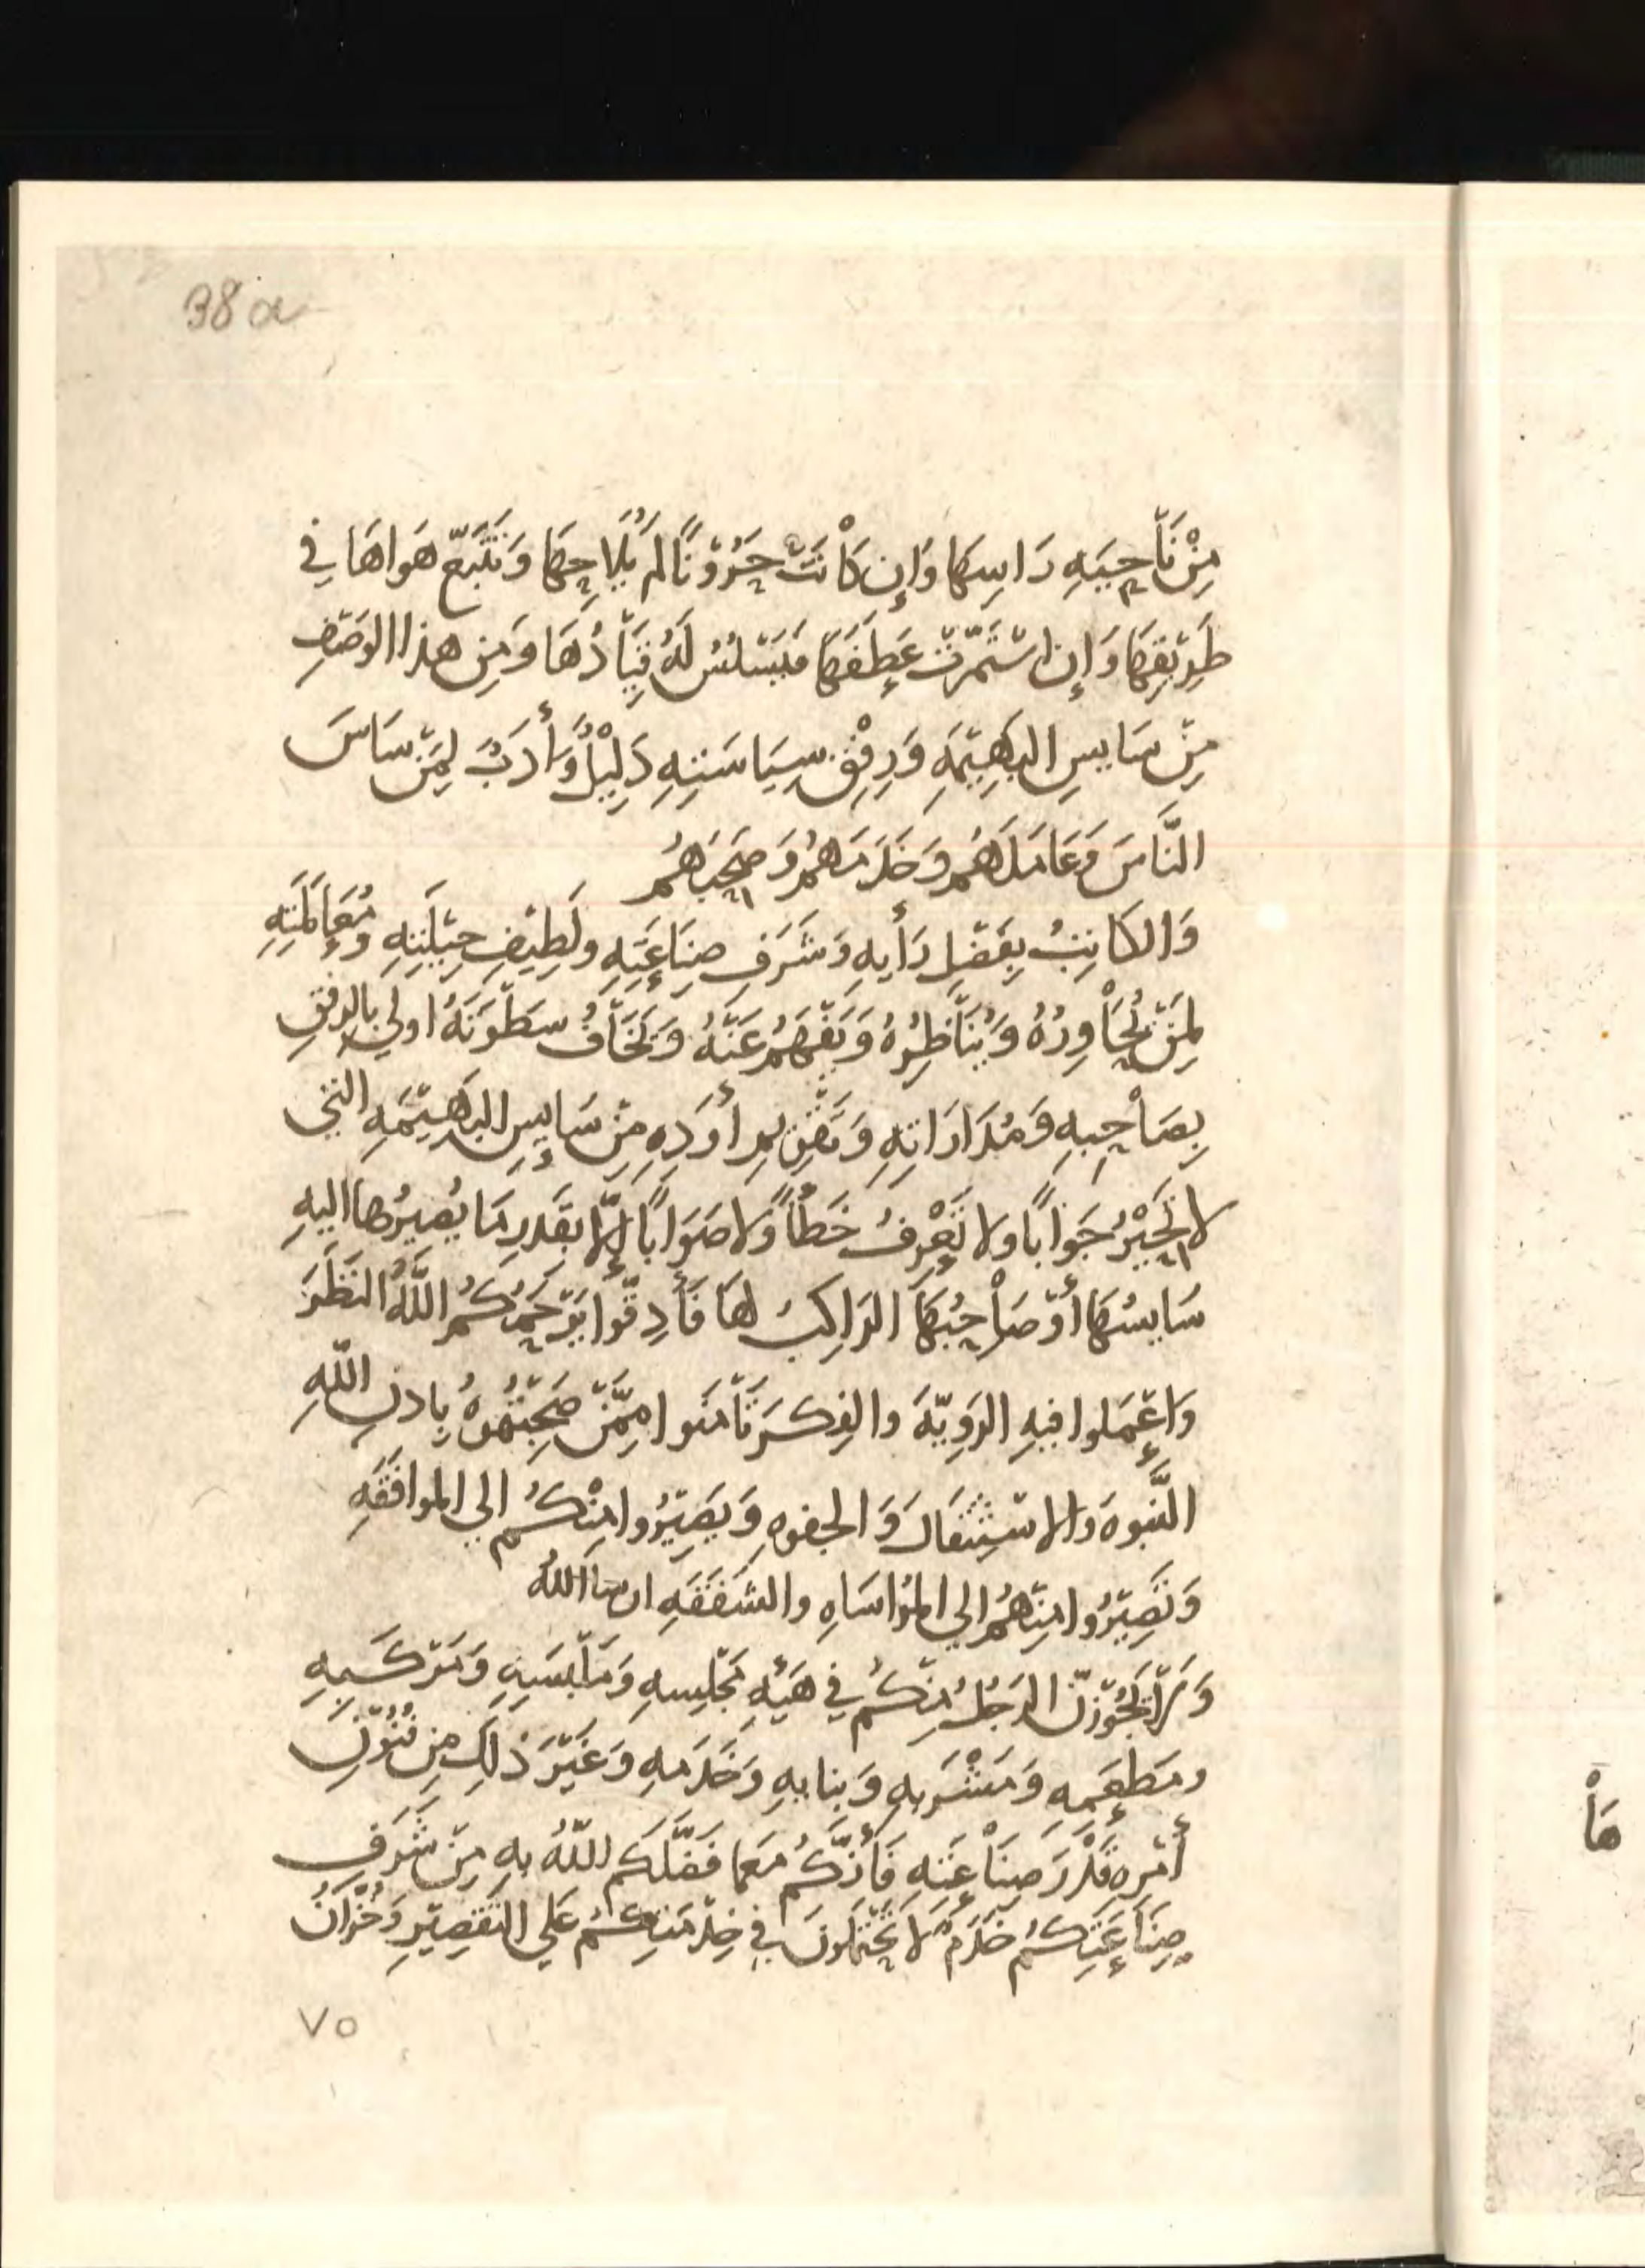 38a
مِنْ نَاْحِيَهِ رَاسِهَا وَإِن كَاْنَتْ حَرُوْنًا لم يُلَاحِهَا وَتَتَبَّعَ هَواهَا فِي
طَرِيْقِهَا وَإِن اسْتَمَرَّتْ عَطِفَهَا فَيَسْلسُ لَهُ قِيَاْدُهَا وَمِن هذا الوَصْفِ
مِنْ سَايسِ البَهِيْمَهِ وَرِفْقِ سِيَاسَتِهِ دَلِيْلٌ وَأَدَبٌ لِمَنْ سَاسَ
النَّاسَ وَعَامَلَهُم وَخَدَمَهُم وَصَحِبَهُم
وَالكَاتِبُ بِفَضْلِ رَأيهِ وَشَرَفِ صِنَاعَتِهِ ولَطِيْفِ حِيْلَتِهِ وَمُعَامَلَتِهِ
لِمَنْ يُحَاْوِرُهُ وَيُنَاْظِرُهُ وَيَفْهَمُ عَنْهُ وَيَخَاْفُ سَطْوَتَهُ اولي بالرفقِ
بِصَاْحِبِهِ وَمُدَارَاتِهِ وَتَقْوِيمِ أَوَدِهِ مِنْ سَايِسِ البَهِيْمَهِ التي
لا تُحِيْرُ جَوَاباً ولا تَعْرِفُ خَطَأً وَلا صَوَاباً إلّا بقَدرِ مَا يُصيرُها اليهِ
سَايسُهَا أوْ صَاْحِبُهَا الرَاكِبُ لهَا فَأَدِقّوا يَرْحَمُكُمُ اللَّهُ النَظَرَ
وَاعْمَلوا فيهِ الرَوِيّهَ والفِكرَ تَأْمَنوا مِمَّنْ صَحِبْتُموْهُ بِاذنِ اللّهِ
النَّبوهَ والاسْتِثْقَالَ وَالجفوهِ وَيَصِيْرُوا مِنْكُم الي الموافَقَهِ
وَتَصِيْرُوا مِنْهُم الي المُؤاسَاهِ والشَفَقَهِ ان شاالله
وَلَا يَجُوْزَنَّ الرَجُلُ مِنْكُم في هَيْئهِ مَجْلِسِهِ وَمَلْبَسِهِ وَمَرْكَبِهِ
ومَطعَمِهِ وَمَشْرَبهِ وَبنايهِ وَخَدَمهِ وَغَيْرَ ذلِكَ مِن فُنُوْنِ
أَمْرهِ قَدْرَ صِنَاْعَتِهِ فَأَنّكُم مَعمَا فَضَّلَكُم اللّهُ بهِ مِنْ شَرَفِ
صِنَاْعَتِكُم خَدَمٌ لا تُحْتَمَلُونَ في خِدْمَتِكُم عَلي التَقْصِيْرِ وَخُزَّانٌ
٧٥
هَاْ